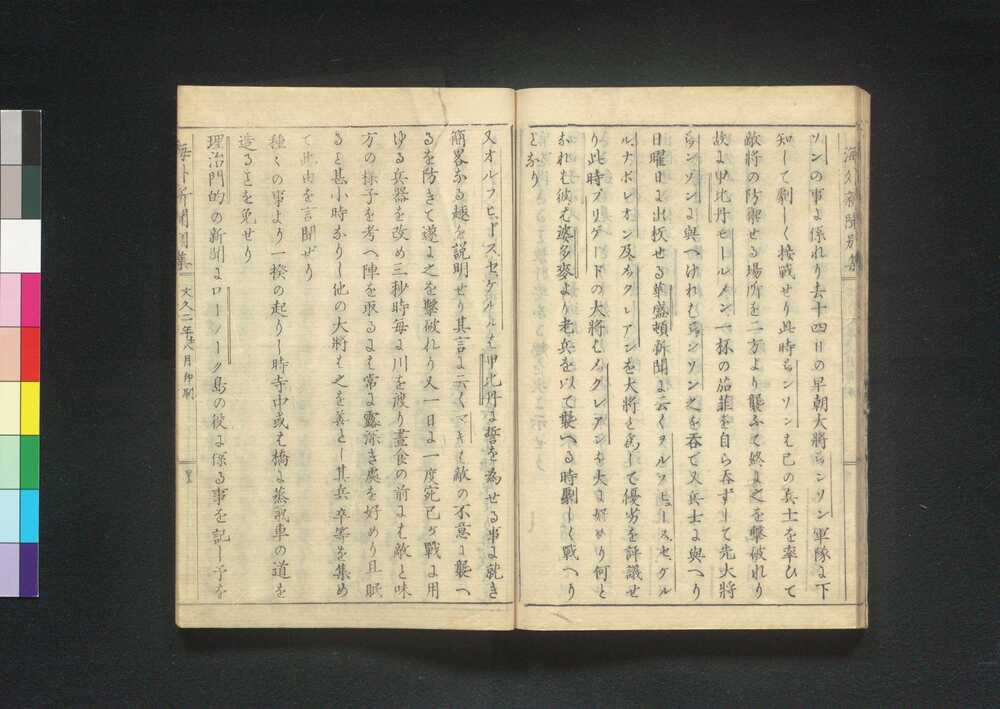 海外新聞別集
ソンの事に係れり去十四日の早朝大将ランソン軍隊に下
知して劇しく接戦せり此時ランソンは己の兵士を率ひて
敵将の防禦せる場所を二方より襲ふて終に之を撃破れり
故に甲比丹モールメン一杯の茄菲を自ら呑ずして先大将
ランソンに與へけれはランソン之を呑て又兵士に與へり
日曜日に出板せる華盛頓新聞に云くヲルフヒースセケル
ル、ナポレオン及ひオクレアンを大将と為して優劣を評議せ
り此時ブリゲードの大将はイグレアンを大に好めり何と
なれは彼は婆多麥より老兵を以て襲へる時劇しく戦へり
となり
又オルフヒースセケルルは甲比丹に誓を為せる事に就き
簡畧なる趣を説明せり其言に云くマキは敵の不意に襲へ
るを防きて遂に之を撃破れり又一日に一度宛己か戦に用
ゆる兵器を改め三秒時毎に川を渡り晝食の前には敵と味
方の様子を考へ陣を取るには常に露深き處を好めり且眠
ると甚小時なりし他の大将は之を善とし其兵卒等を集め
て此由を言聞せり
種々の事より一揆の起りし時寺中或は橋に蒸気車の道を
造ることを免せり
理治門的の新聞にローノーク島の役に係る事を記し予を
海外新聞別集
文久二年八月印刷